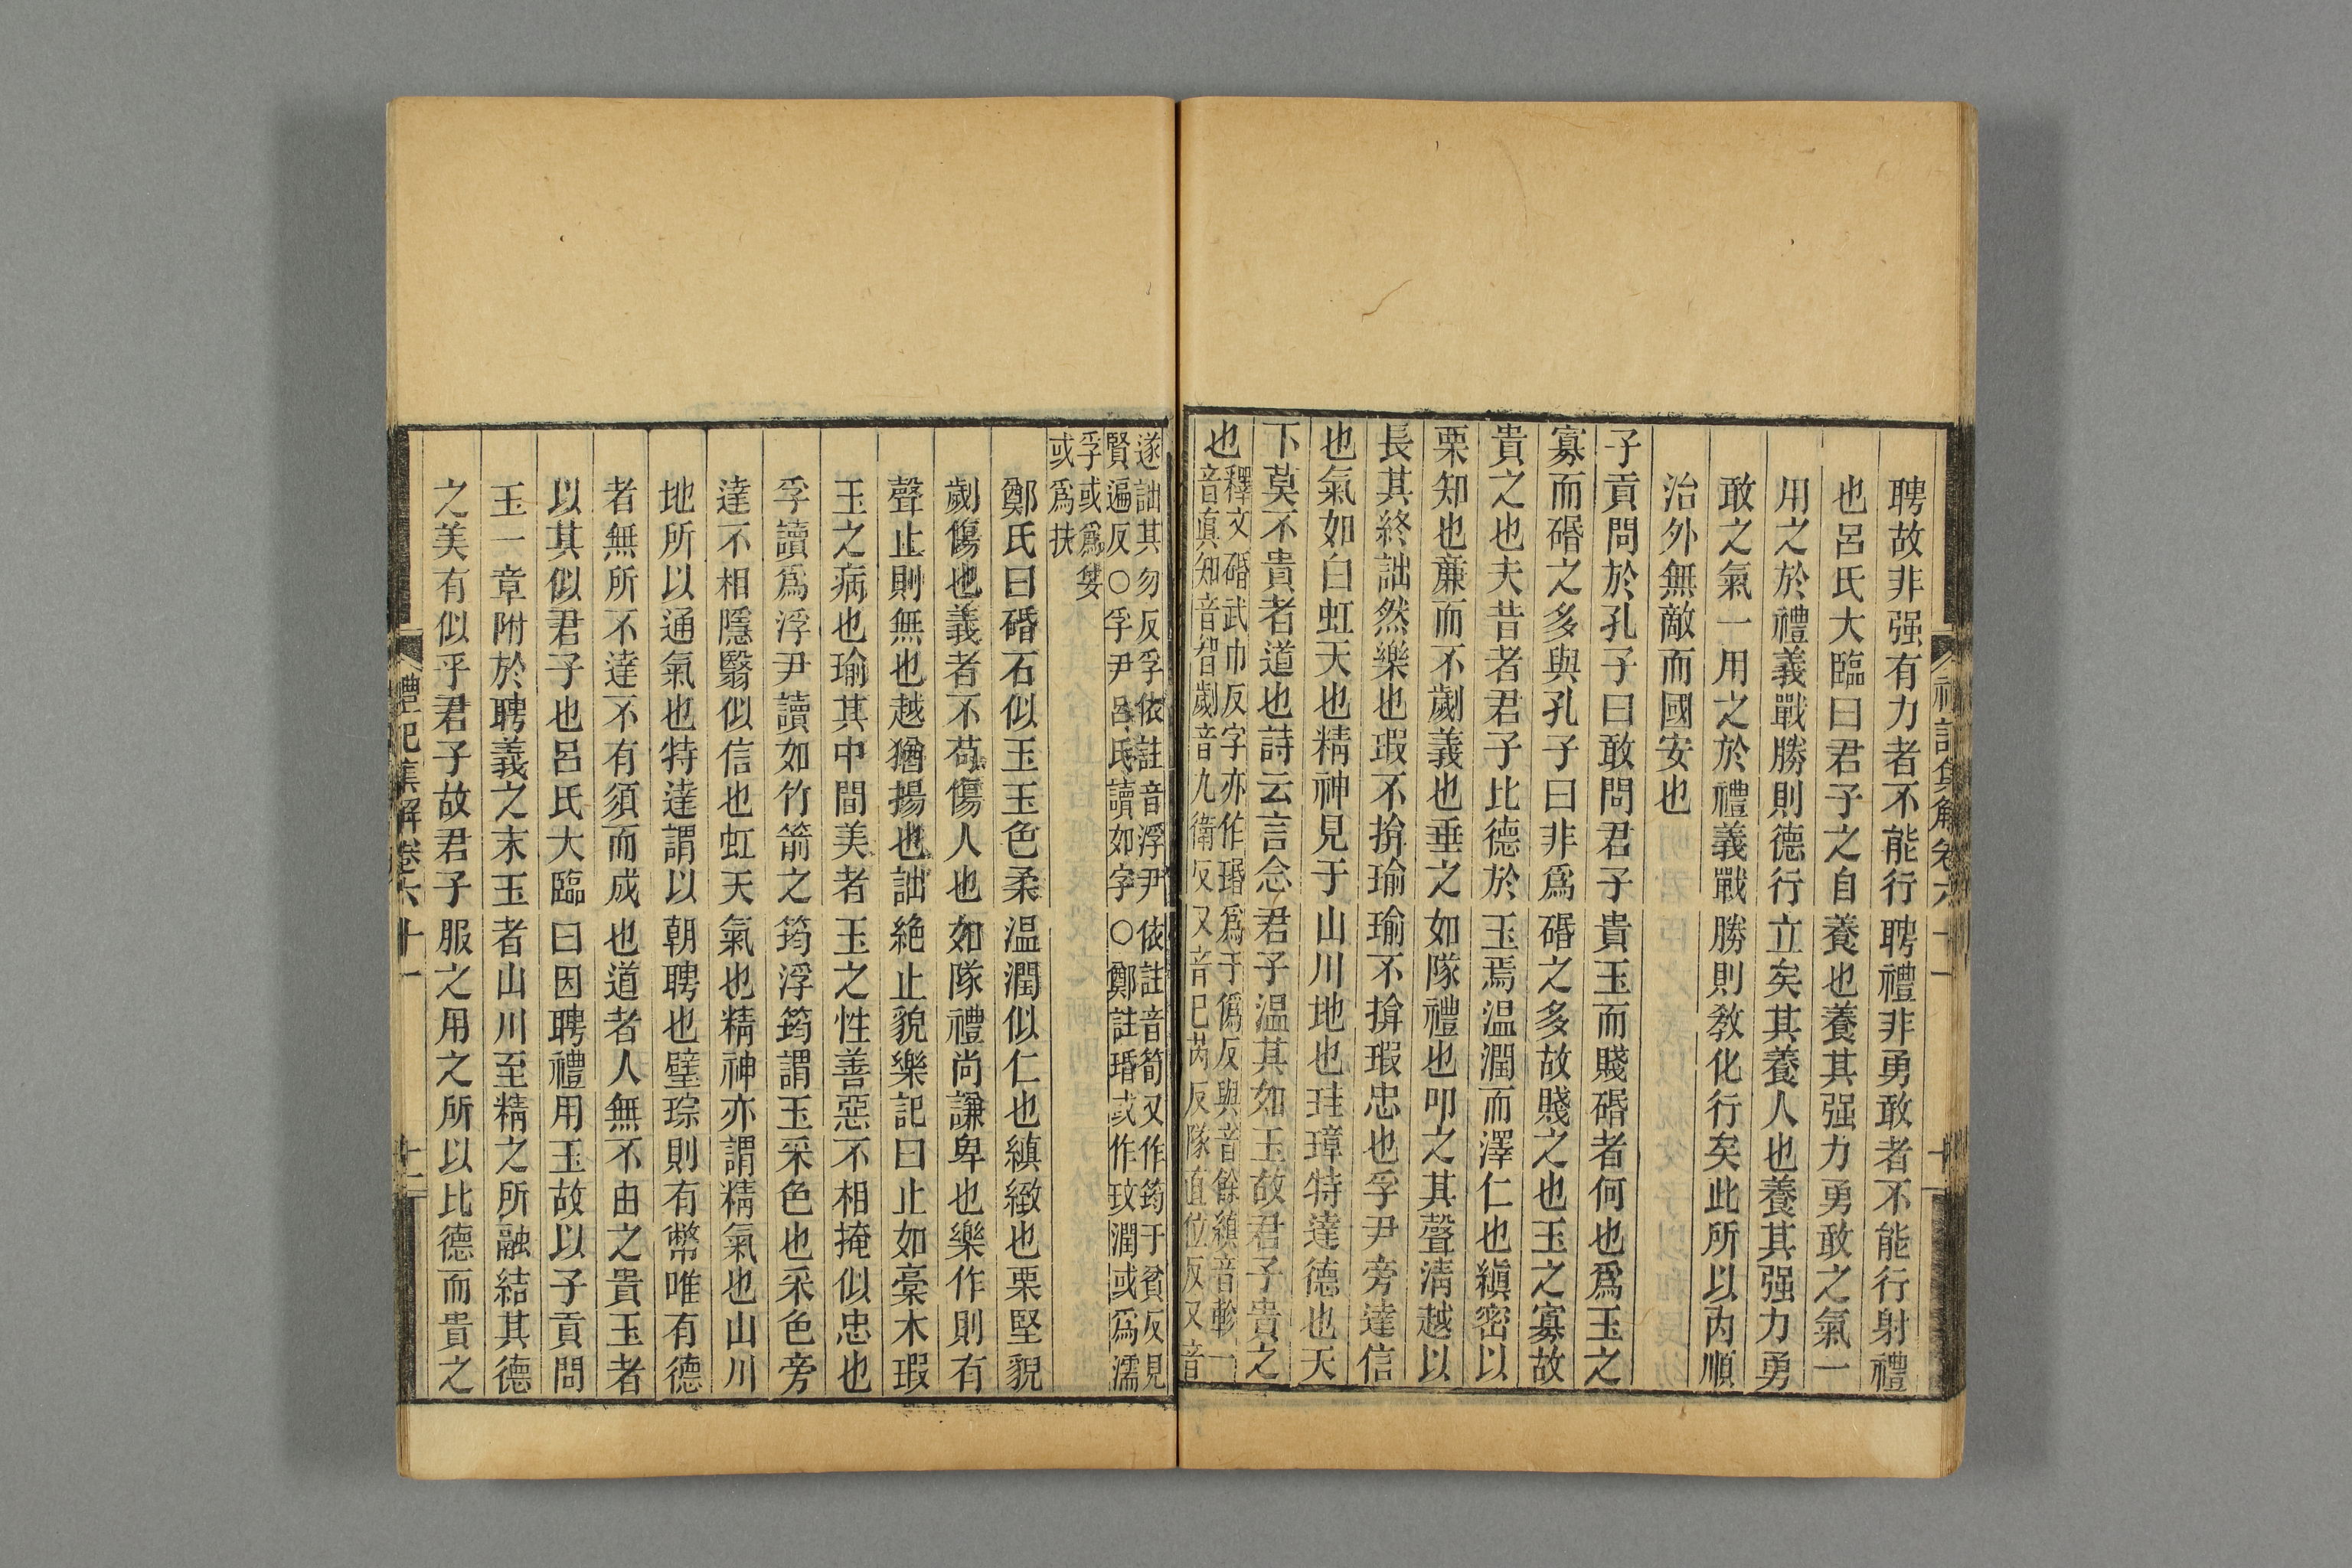 聘故非强有力者不能行聘禮非勇敢者不能行射禮
也呂氏大臨曰君子之自養也養其强力勇敢之氣一
用之於禮義戰勝則德行立矣其養人也養其强力勇
敢之氣一用之於禮義戰勝則敎化行矣此所以內順
治外無敵而國安也
子貢問於孔子曰敢問君子貴玉而賤碈者何也爲玉之
寡而碈之多與孔子曰非爲碈之多故賤之也玉之寡故
貴之也夫昔者君子比德於玉焉温潤而澤仁也縝密以
栗知也廉而不劌義也垂之如隊禮也叩之其聲淸越以
長其終詘然樂也瑕不揜瑜瑜不揜瑕忠也孚尹旁達信
也氣如白虹天也精神見于山川地也珪璋特達德也天
下莫不貴者道也詩云言念君子温其如玉故君子貴之
也
釋文碈武巾反字亦作瑉爲于僞反與音餘縝音軫一
音眞知音智劌音九衛反又音已芮反隊直位反又音
遂詘其勿反孚依註音浮尹依註音筍又作筠于貧反見
賢遍反○孚尹呂氏讀如字○鄭註瑉或作玟潤或爲濡
孚或爲姇
或爲扶
鄭氏曰碈石似玉玉色柔温潤似仁也縝緻也栗堅貌
劌傷也義者不苟傷人也如隊禮尚謙卑也樂作則有
聲止則無也越猶揚也詘絶止貌樂記曰止如稾木瑕
玉之病也瑜其中間美者玉之性善惡不相掩似忠也
孚讀爲浮尹讀如竹箭之筠浮筠謂玉采色也采色旁
達不相隱翳似信也虹天氣也精神亦謂精氣也山川
地所以通氣也特達謂以朝聘也璧琮則有幣唯有德
者無所不達不有須而成也道者人無不由之貴玉者
以其似君子也呂氏大臨曰因聘禮用玉故以子貢問
玉一章附於聘義之末玉者山川至精之所融結其德
之美有似乎君子故君子服之用之所以比德而貴之
禮記集解卷六十一
十二